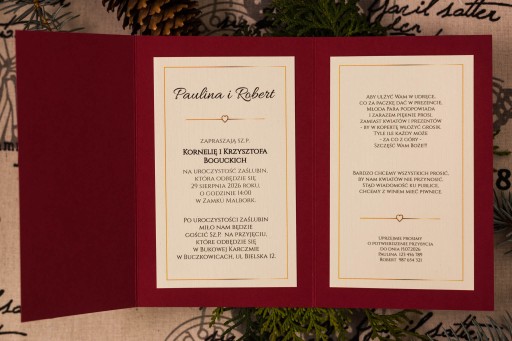 Paulina i Robert
ZAPRASZAJĄ SZ.P.
KORNELIĘ I KRZYSZTOFA
BOGUCKICH
NA UROCZYSTOŚĆ ZAŚLUBIN,
KTÓRA ODBĘDZIE SIĘ
29 SIERPNIA 2026 ROKU,
O GODZINIE 14:00
W ZAMKU MALBORK.
PO UROCZYSTOŚCI ZAŚLUBIN
MIŁO NAM BĘDZIE
GOŚCIĆ SZ.P. NA PRZYJĘCIU,
KTÓRE ODBĘDZIE SIĘ
W BUKOWEJ KARCZMIE
W BUCZKOWICACH, UL. BIELSKA 12.
ABY ULŻYĆ WAM W UDRĘCE,
CO ZA PACZKĘ DAĆ W PREZENCIE,
MŁODA PARA PODPOWIADA
I ZARAZEM PIĘKNIE PROSI,
ZAMIAST KWIATÓW I PREZENTÓW
- BY W KOPERTĘ WŁOŻYĆ GROSIK.
TYLE ILE KAŻDY MOŻE
- ZA CO Z GÓRY -
SZCZĘŚĆ WAM BOŻE!!
BARDZO CHCEMY WSZYSTKICH PROSIĆ,
BY NAM KWIATÓW NIE PRZYNOSIĆ.
STĄD WIADOMOŚĆ KU PUBLICE,
CHCEMY Z WINEM MIEĆ PIWNICE.
UPRZEJMIE PROSIMY
O POTWIERDZENIE PRZYBYCIA
DO DNIA 15.07.2026
PAULINA 123 456 789
ROBERT 987 654 321